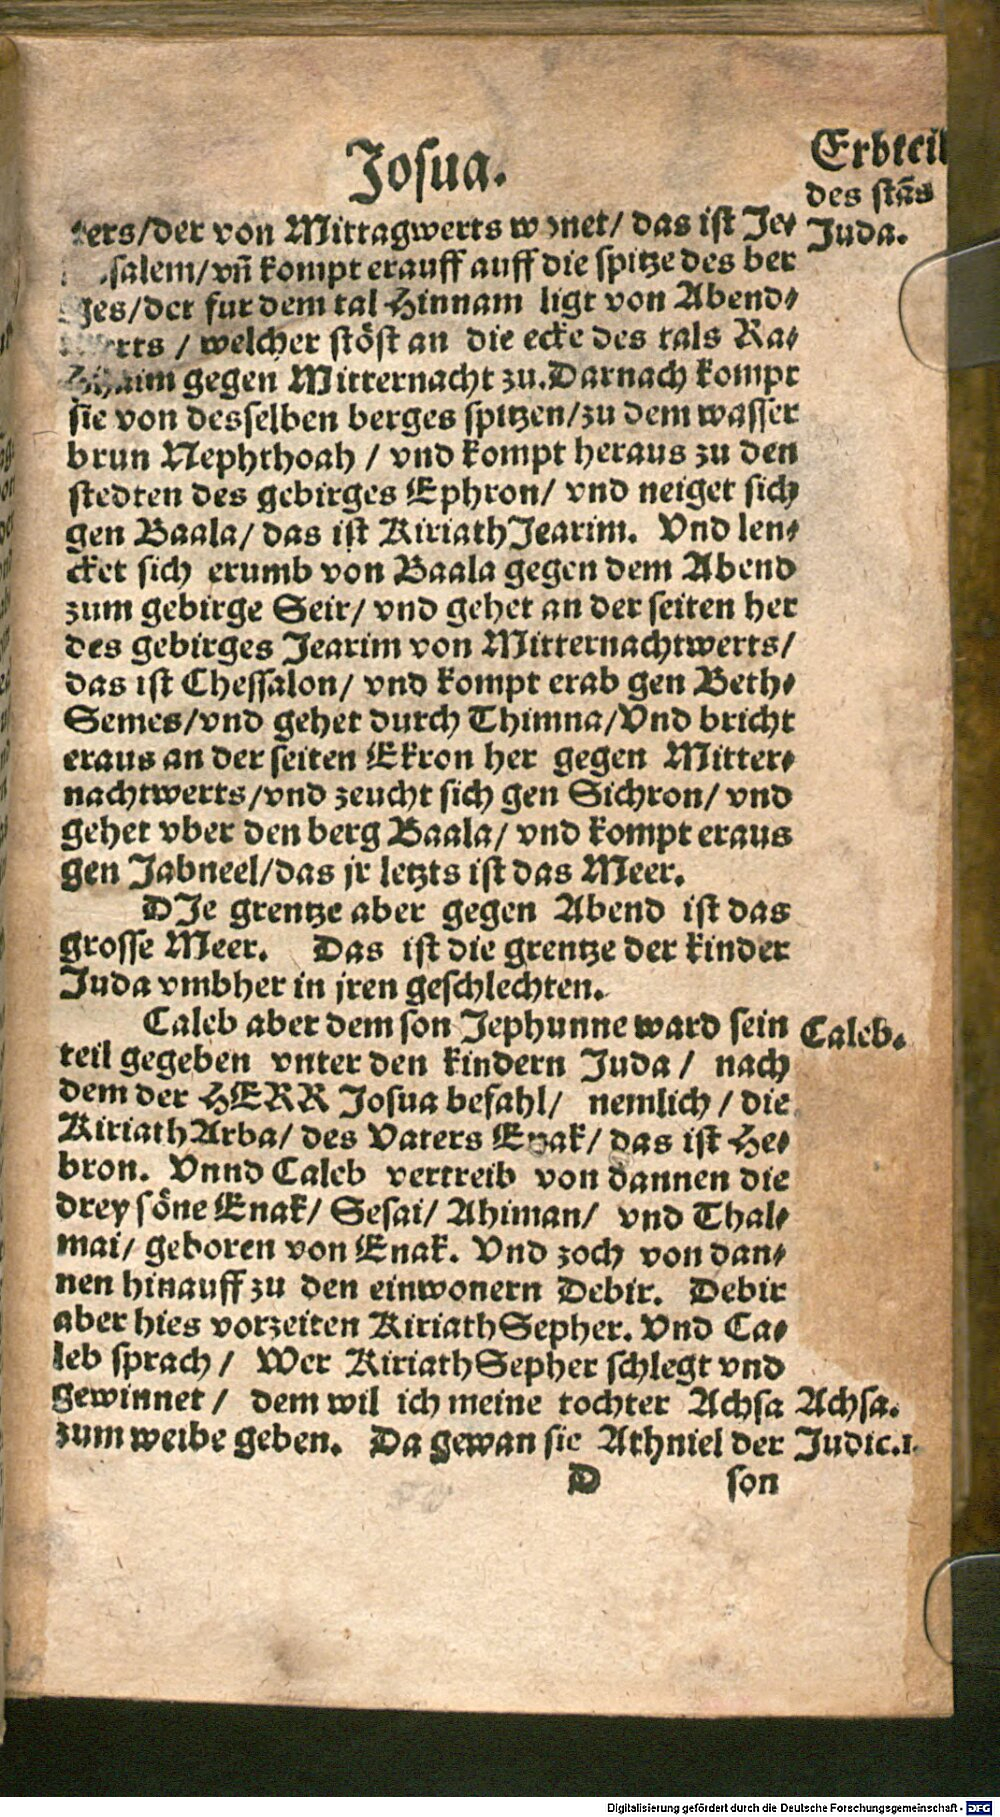 Josua.
Erbteil
des stañs
Juda.
ters/der von Mittagwerts wonet/ das ist Je⸗
salem/vñ kompt erauff auff die spitze des ber
ges/der fur dem tal Hinnam ligt von Abend⸗
werts / welcher stöst an die ecke des tals Ra⸗
phaim gegen Mitternacht zu. Darnach kompt
sie von desselben berges spitzen/zu dem wasser
brun Nephthoah / vnd kompt heraus zu den
stedten des gebirges Ephron/ vnd neiget sich
gen Baala/ das ist KiriathJearim. Vnd len⸗
cket sich erumb von Baala gegen dem Abend
zum gebirge Seir/ vnd gehet an der seiten her
des gebirges Jearim von Mitternachtwerts/
das ist Chessalon/ vnd kompt erab gen Beth⸗
Semes/vnd gehet durch Thimna/Vnd bricht
eraus an der seiten Ekron her gegen Mitter⸗
nachtwerts/vnd zeucht sich gen Sichron/ vnd
gehet vber den berg Baala/ vnd kompt eraus
gen Jabneel/das jr letzts ist das Meer.
DJe grentze aber gegen Abend ist das
grosse Meer. Das ist die grentze der kinder
Juda vmbher in jren geschlechten.
Caleb aber dem son Jephunne ward sein
Caleb.
teil gegeben vnter den kindern Juda / nach
dem der HERR Josua befahl/ nemlich / die
KiriathArba/ des Vaters Enak/ das ist He⸗
bron. Vnnd Caleb vertreib von dannen die
drey söne Enak/ Sesai/ Ahiman/ vnd Thal⸗
mai/ geboren von Enak. Vnd zoch von dan⸗
nen hinauff zu den einwonern Debir. Debir
aber hies vorzeiten KiriathSepher. Vnd Ca⸗
leb sprach / Wer KiriathSepher schlegt vnd
gewinnet / dem wil ich meine tochter Achsa
Achsa.
zum weibe geben. Da gewan sie Athniel der
Judic.1.
D son
Digitalisierung gefördert durch die Deutsche Forschungsgemeinschaft - DFG